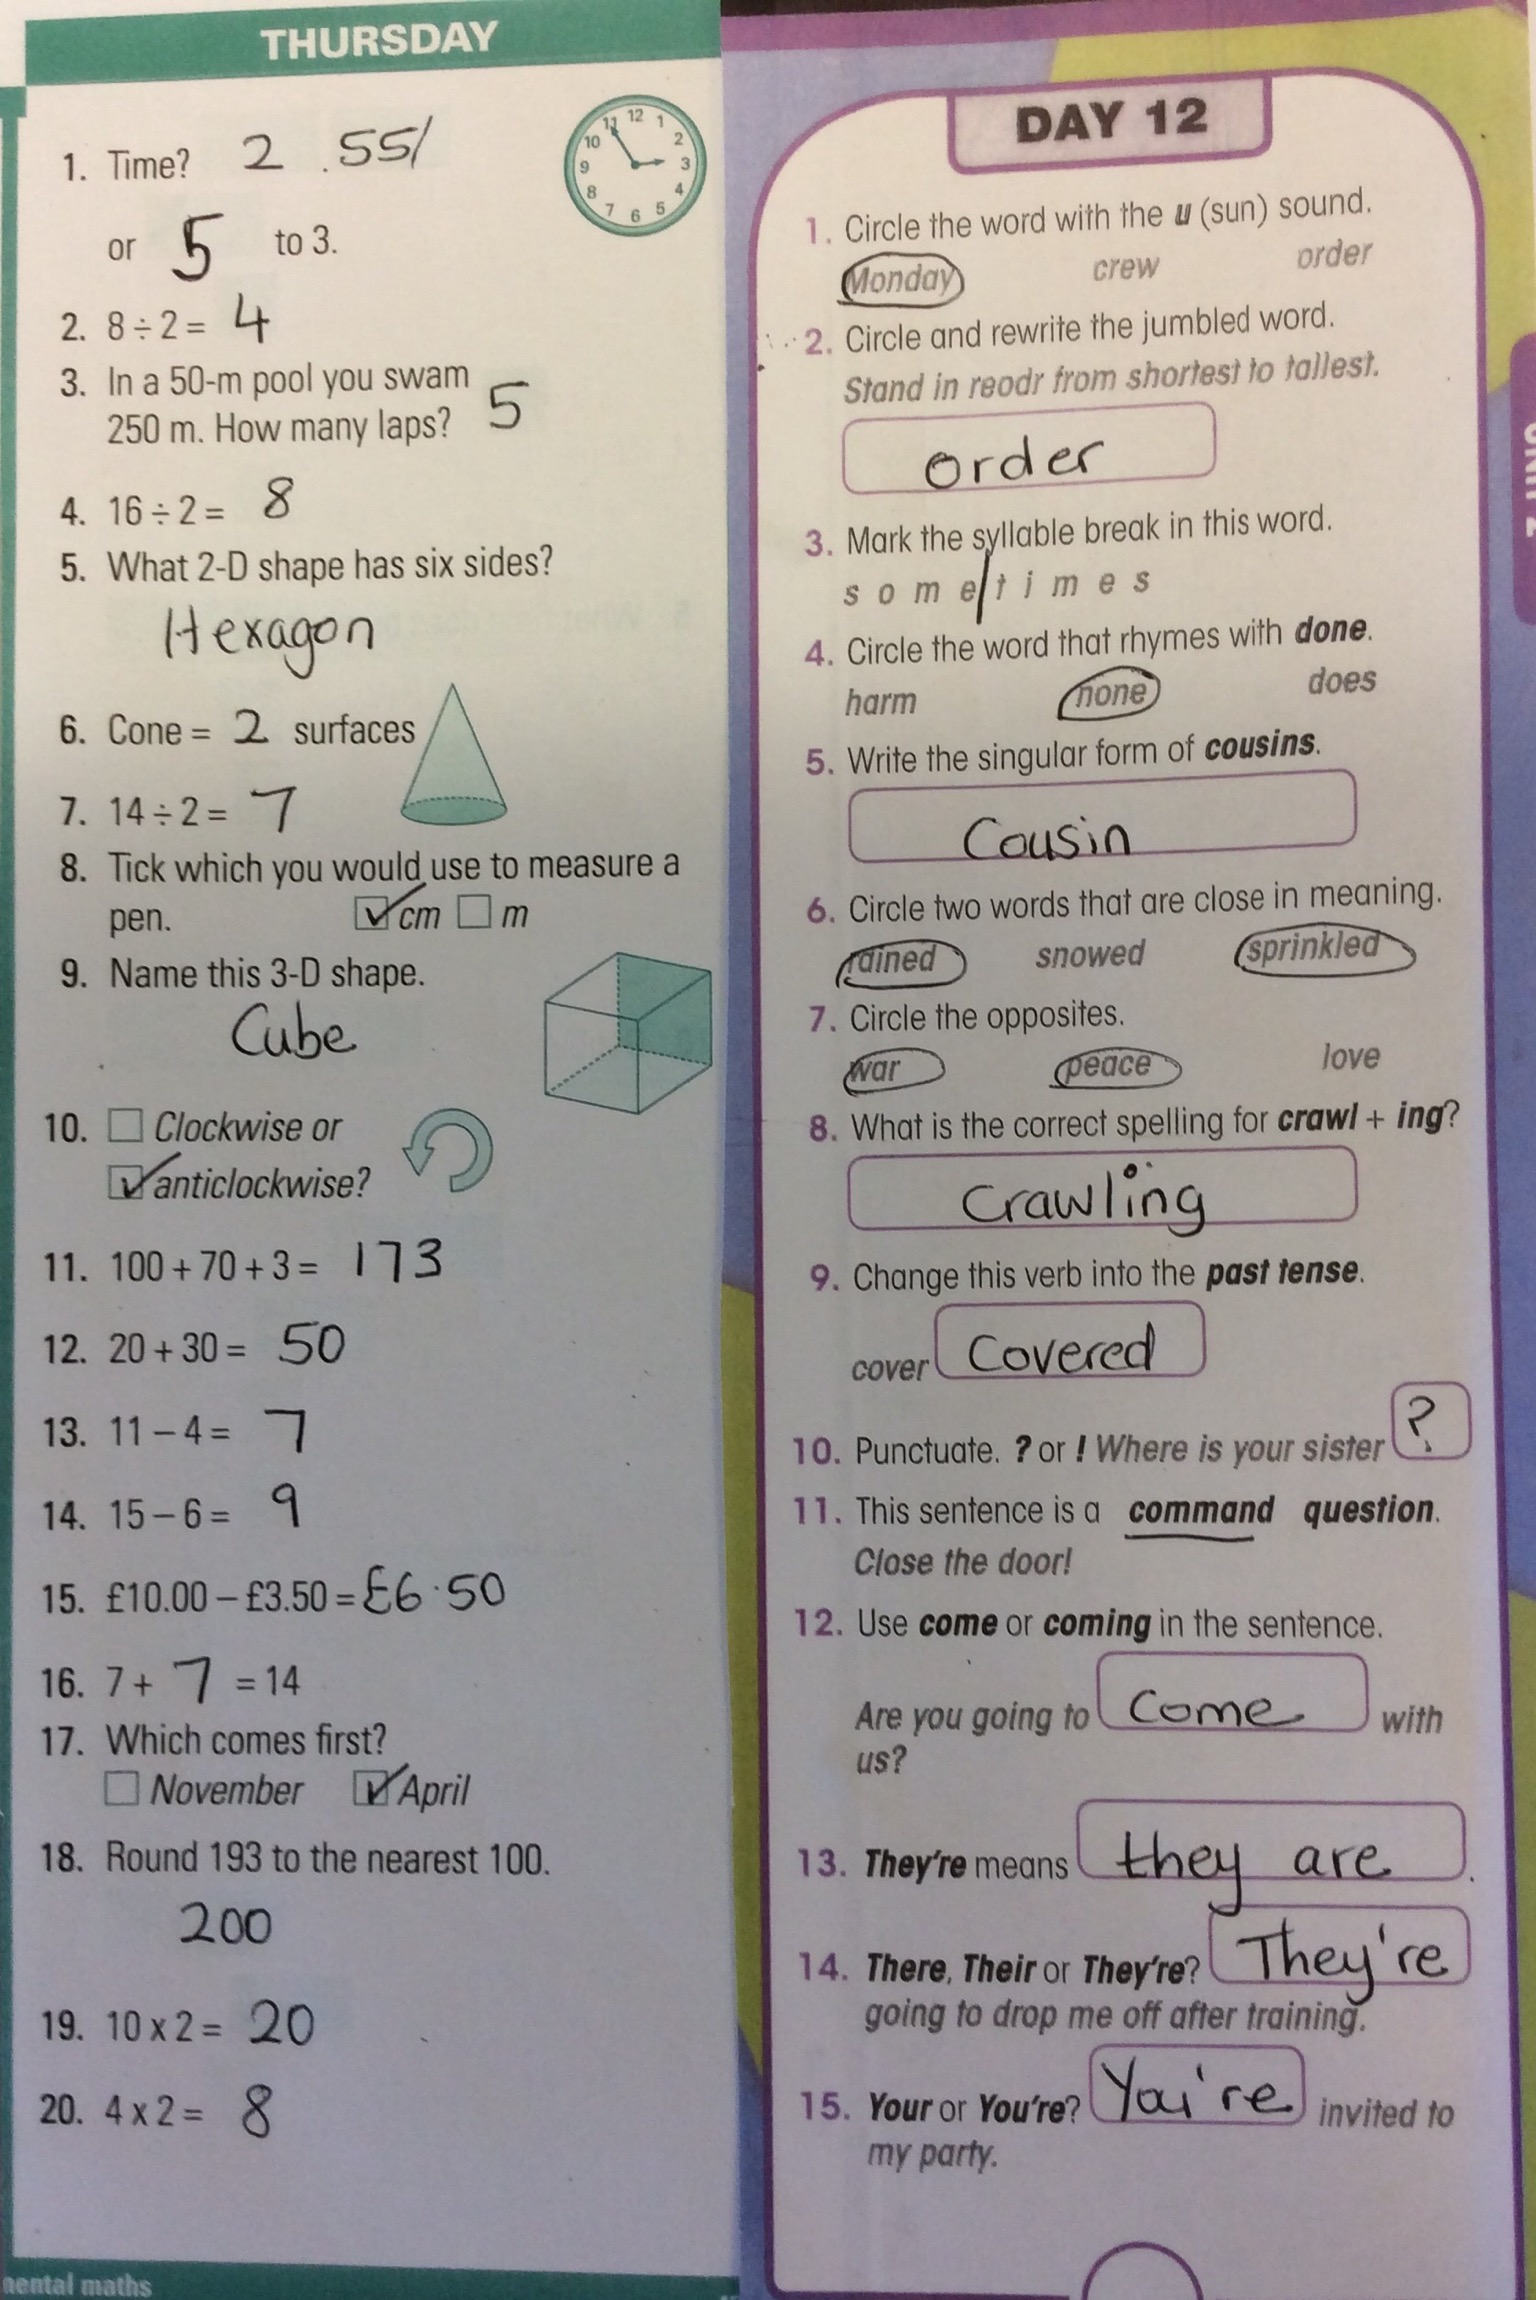 THURSDAY
1. Time? 2 .55/
12 1 2 3 4 5 6 7 8 9 10 11
or 5 to 3.
2. 8 ÷ 2 = 4
3. In a 50-m pool you swam 5
250 m. How many laps?
4. 16 ÷ 2 = 8
5. What 2-D shape has six sides?
Hexagon
6. Cone = 2 surfaces
7. 14 ÷ 2 = 7
8. Tick which you would use to measure a
pen. cm m
9. Name this 3-D shape.
Cube
10. Clockwise or
anticlockwise?
11. 100 + 70 + 3 = 173
12. 20 + 30 = 50
13. 11 – 4 = 7
14. 15 – 6 = 9
15. £10.00 – £3.50 = £6.50
16. 7 + 7 = 14
17. Which comes first?
November April
18. Round 193 to the nearest 100.
200
19. 10 x 2 = 20
20. 4 x 2 = 8
mental maths
DAY 12
1. Circle the word with the u (sun) sound.
Monday crew order
2. Circle and rewrite the jumbled word.
Stand in reodr from shortest to tallest.
order
3. Mark the syllable break in this word.
some/times
4. Circle the word that rhymes with done.
harm none does
5. Write the singular form of cousins.
Cousin
6. Circle two words that are close in meaning.
rained snowed sprinkled
7. Circle the opposites.
war peace love
8. What is the correct spelling for crawl + ing?
Crawling
9. Change this verb into the past tense.
cover Covered
10. Punctuate. ? or ! Where is your sister ?
11. This sentence is a command question.
Close the door!
12. Use come or coming in the sentence.
Are you going to Come with
us?
13. They're means they are.
14. There, Their or They're? They're
going to drop me off after training.
15. Your or You're? You're invited to
my party.